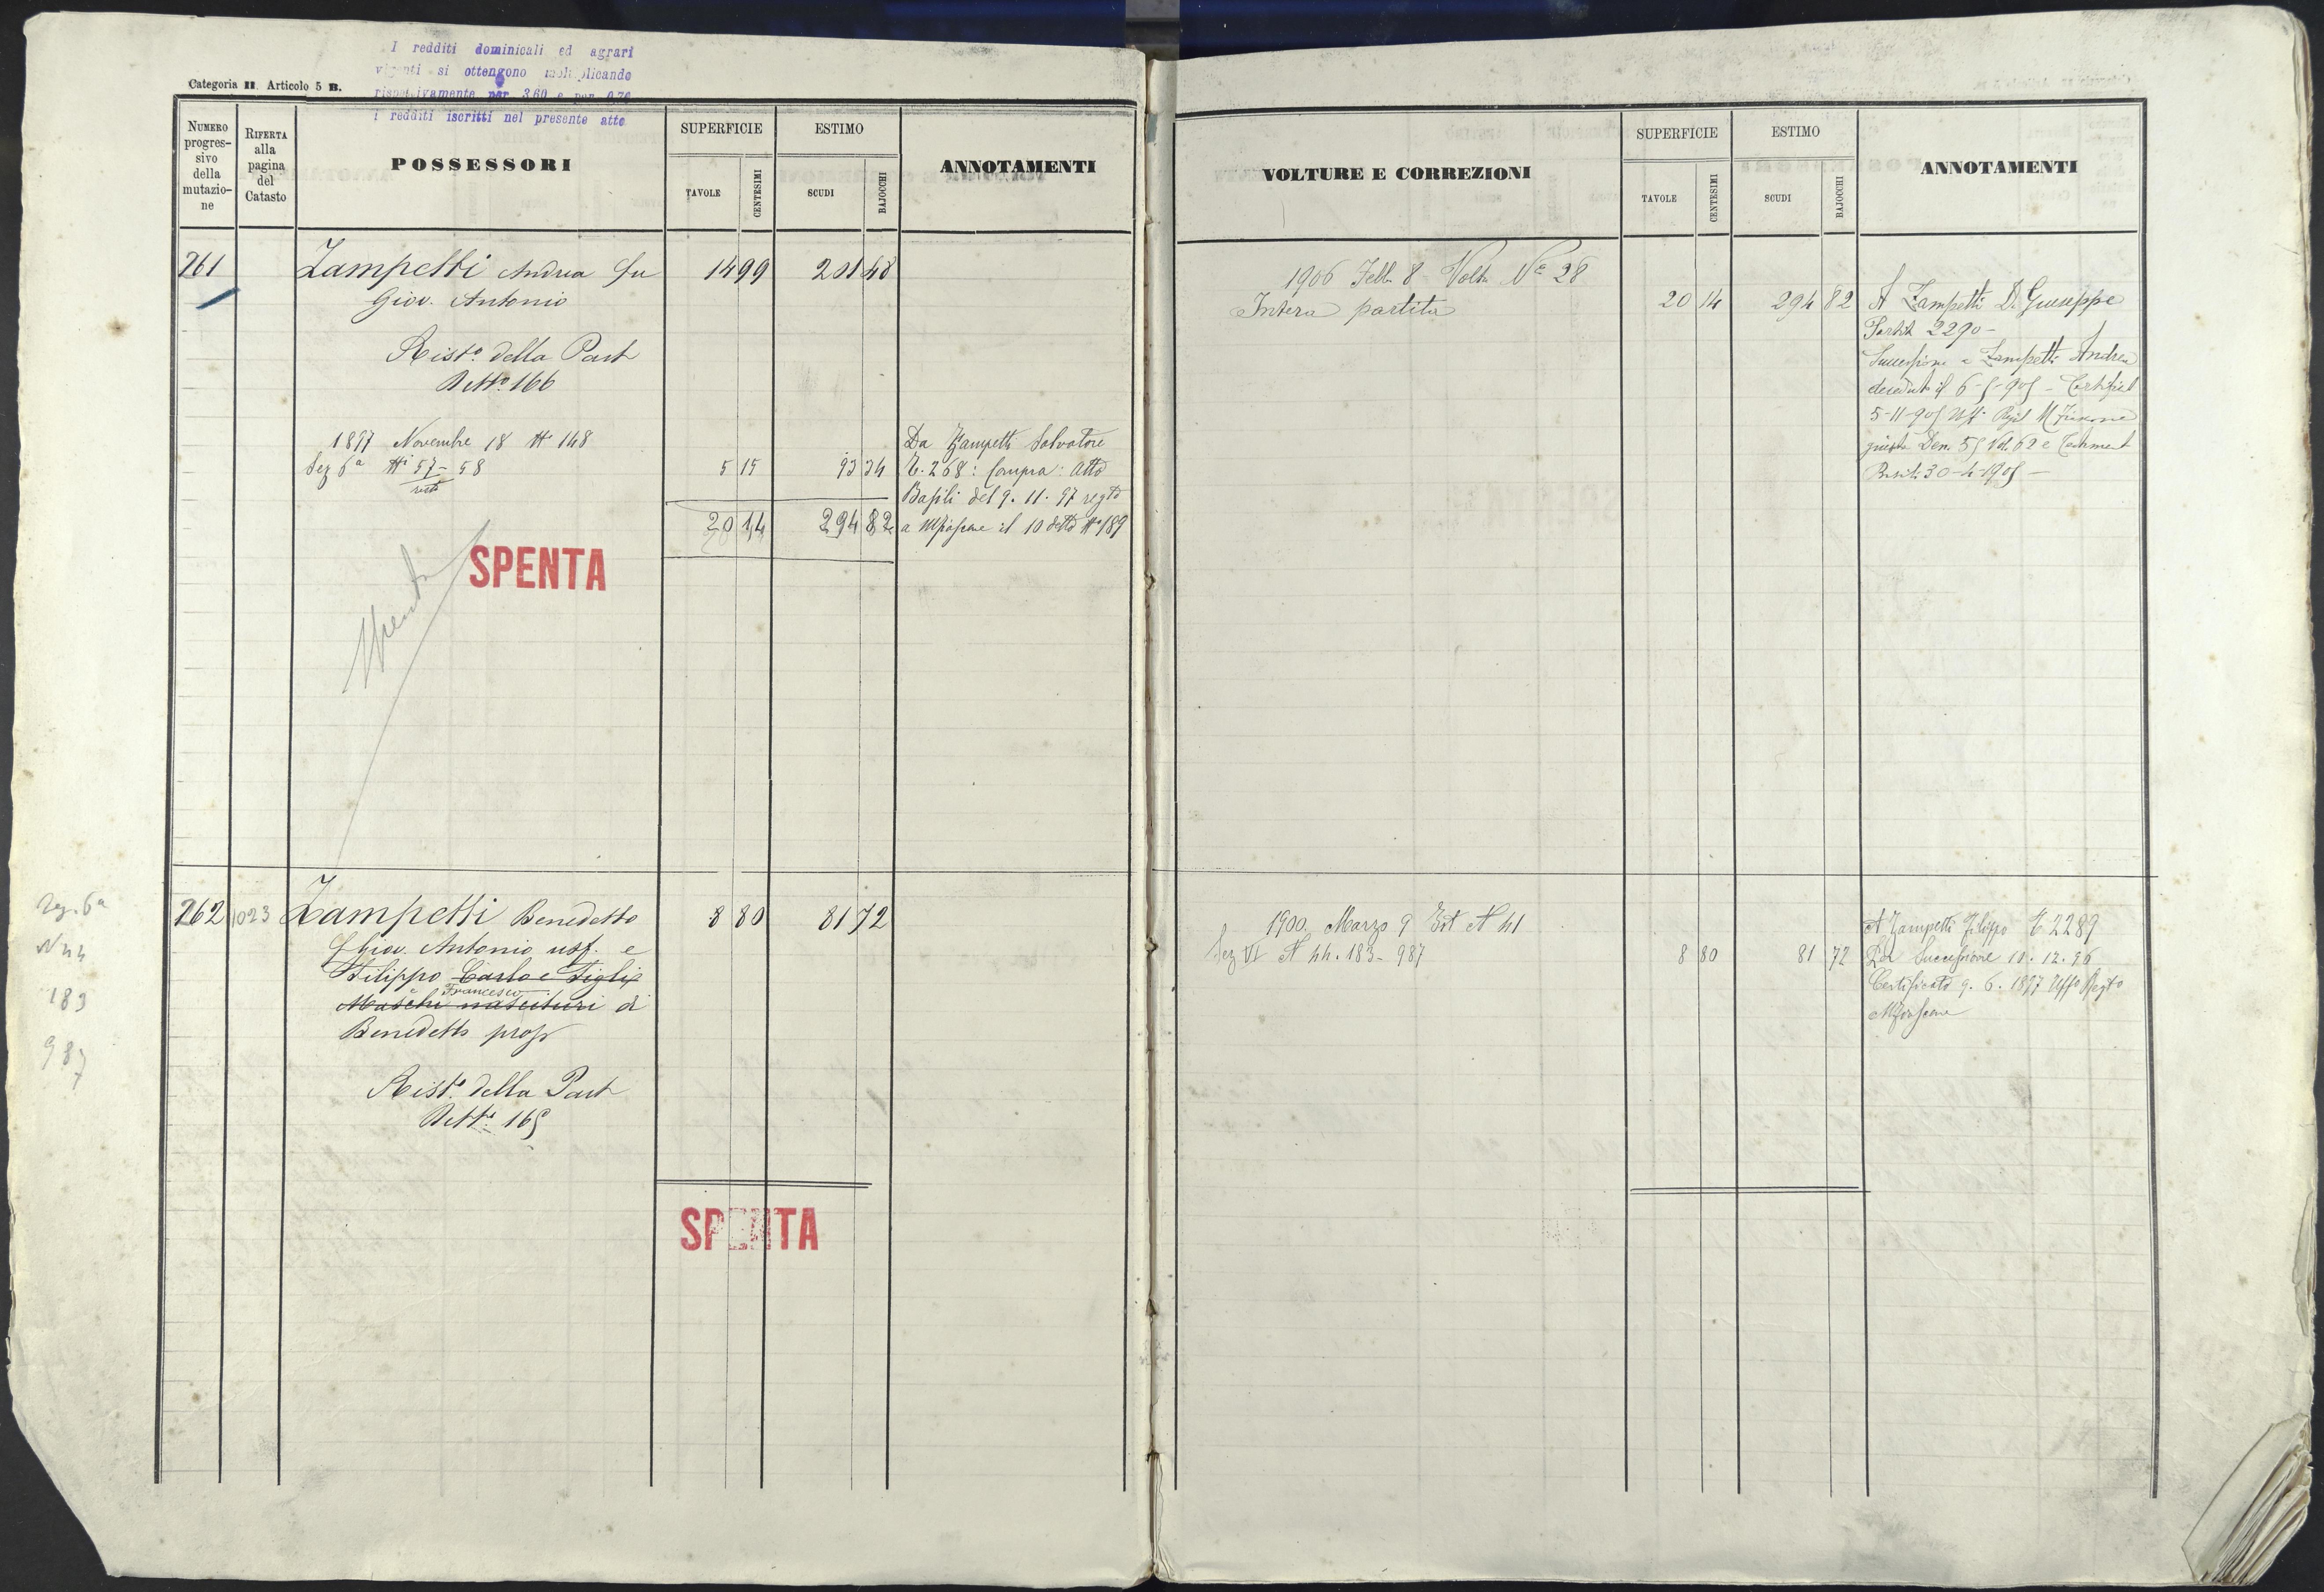 I redditi dominicali ed agrari
vigenti si ottengono moltiplicando
rispettivamente per 3.60 e per 0.70
i redditi iscritti nel presente atto
Categoria II. Articolo 5 B.
NUMERO progres- sivo della mutazio- ne
RIFERTA alla pagina del Catasto
POSSESSORI
SUPERFICIE
TAVOLE
CENTESIMI
ESTIMO
SCUDI
BAJOCCHI
ANNOTAMENTI
261 Zampetti Andrea fu 14 99 201 48
Giov. Antonio
Rist.o della Part
Nett.o 166
1897 Novembre 18 No 148
Sez 6a Ni 57-58 5 15 93 34
resto
20 14 294 82
20 14
Da Zampetti Salvatore
C. 268: Compra: Atto
Basili del 9. 11. 97 regto
a il 10 detto No 189
Spenta
SPENTA
Sez. 6a
N 44
183
987
262 1023 Zampetti Benedetto 8 80 81 72
f Giov. Antonio usf. e
Filippo Carlo e Figli
Francesco
Maschi nascituri di
Benedetto prop
Rist.o della Part
Nett.o 165
SPENTA
VOLTURE E CORREZIONI
SUPERFICIE
TAVOLE
CENTESIMI
ESTIMO
SCUDI
BAJOCCHI
ANNOTAMENTI
1906 Febb. 8 Volt. No 28
Intera partita 20 14 294 82
A Zampetti D. Giuseppe
Partit 2290-
Successione a Zampetti Andrea
deceduto il 6-5-905 - Certificat
5-11-905 Uff. Regist
giusta Den. 55 Vol. 62 e Testament
30-4-1905 -
1900. Marzo 9 Est N 41
Sez VI N 44. 183 - 987 8 80 81 72
A Zampetti Filippo C. 2289
Per Successione 10. 12. 96
Certificato 9. 6. 1897 Uffo Regto